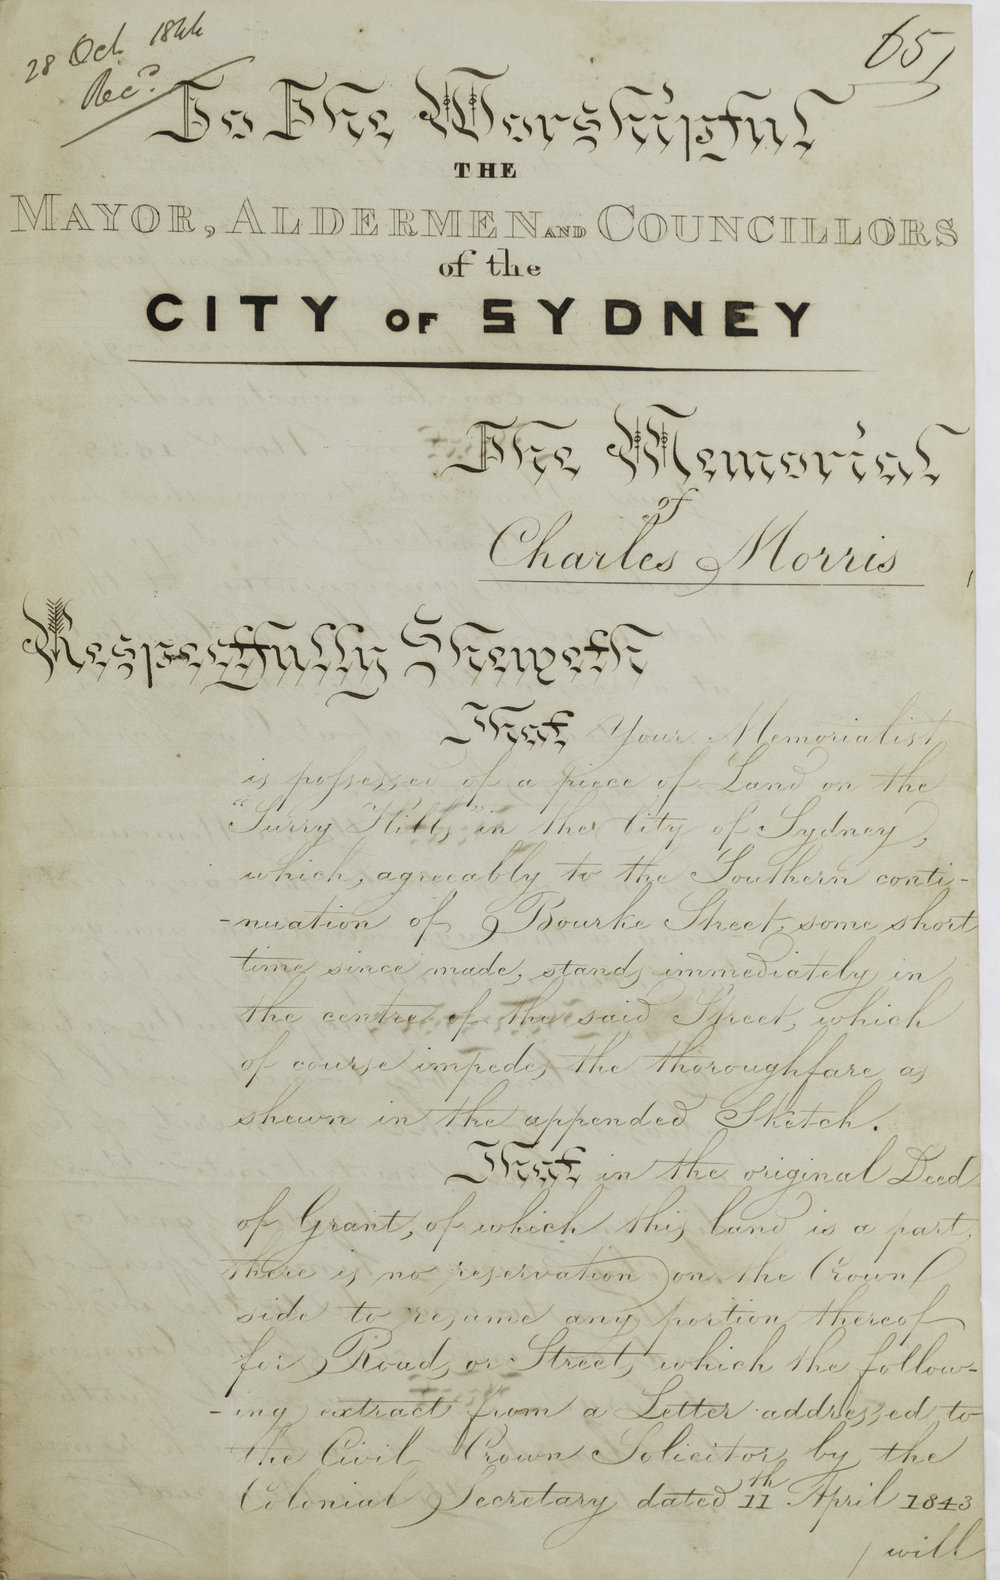 28 Oct 1844
Recd
65
To The Worshipful
THE
MAYOR, ALDERMEN AND COUNCILLORS
of the
CITY OF SYDNEY
The Memorial
of
Charles Morris
Respectfully Sheweth
That Your Memorialist
is possessed of a piece of Land on the
"Surry Hills" in the City of Sydney,
which, agreeably to the Southern conti-
-nuation of Bourke Street, some short
time since made, stands immediately in
the centre of the said Street, which
of course impedes the thoroughfare as
shewn in the appended Sketch.
That in the original Deed
of Grant, of which this land is a part,
there is no reservation on the Crown
side to resume any portion thereof
for Roads or Streets, which the follow-
-ing extract from a Letter addressed to
the Civil Crown Solicitor by the
Colonial Secretary dated 11th April 1843
/ will